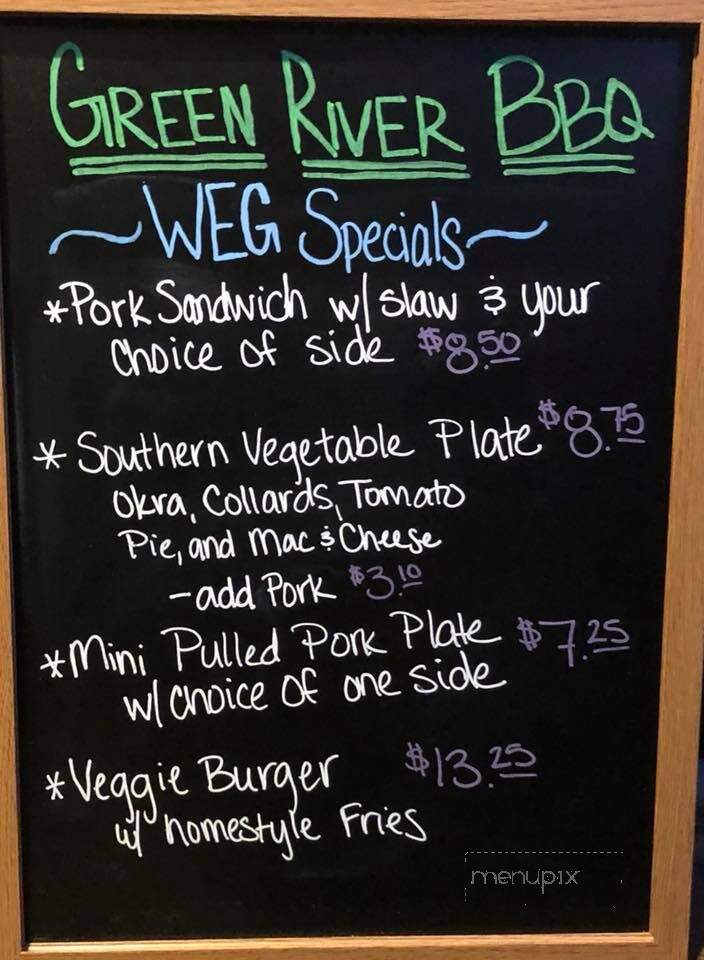 GREEN RIVER BBQ
~WEG Specials~
*Pork Sandwich w/ slaw & your
Choice of side $8.50
* Southern Vegetable Plate $8.75
Okra, Collards, Tomato
Pie, and Mac & Cheese
-add Pork $3.10
*Mini Pulled Pork Plate $7.25
w/ choice of one side
*Veggie Burger $13.25
w/ homestyle Fries
menupix